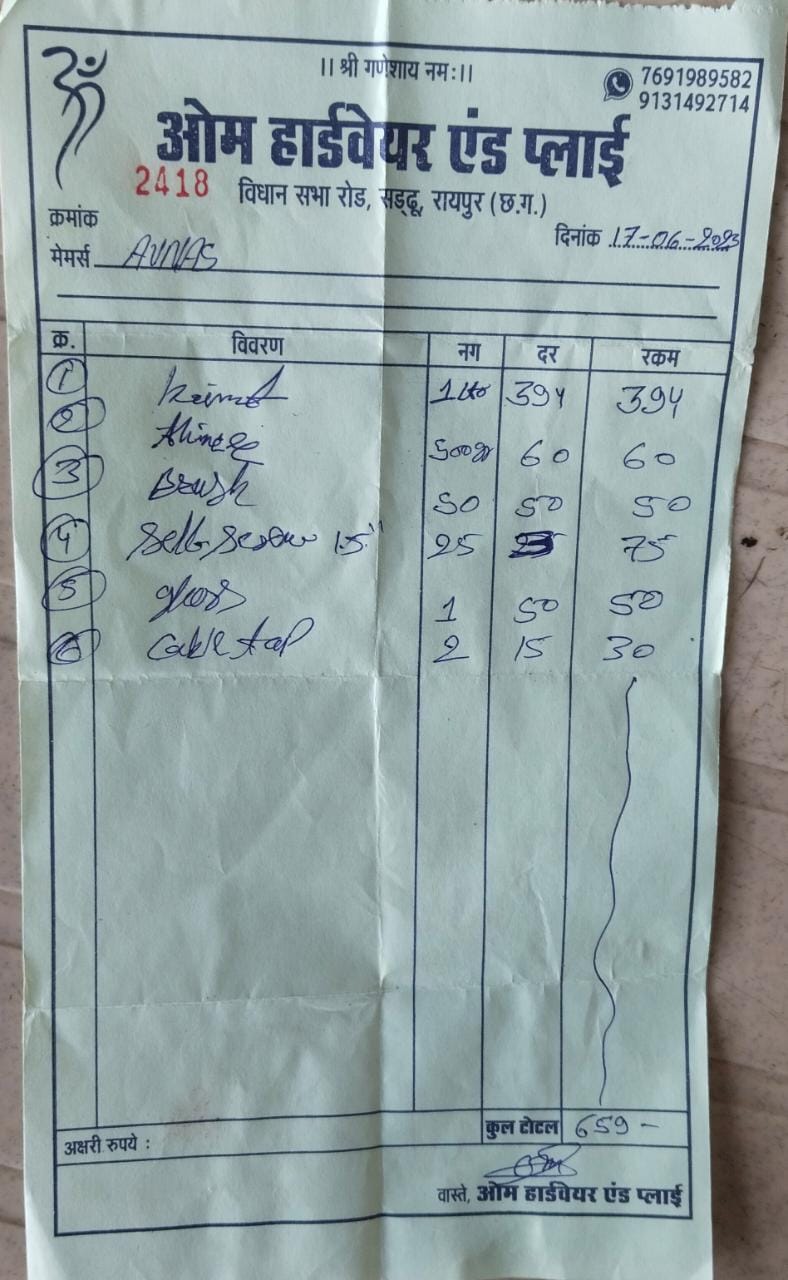 ।। श्री गणेशाय नमः।।
7691989582
9131492714
ओम हार्डवेयर एंड प्लाई
2418 विधान सभा रोड, सड्ढू, रायपुर (छ.ग.)
क्रमांक
दिनांक 17-06-2023
मेमर्स AVNAS
क्र. विवरण नग दर रकम
1 394 394
2 60 60
3 Brush 50 50 50
4 Self Screw 1.5" 25 75
5 1 50 50
6 Cable 2 15 30
कुल टोटल 659 -
अक्षरी रुपये :
वास्ते, ओम हार्डवेयर एंड प्लाई